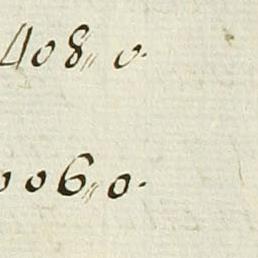 408,, 0.
006,, 0.